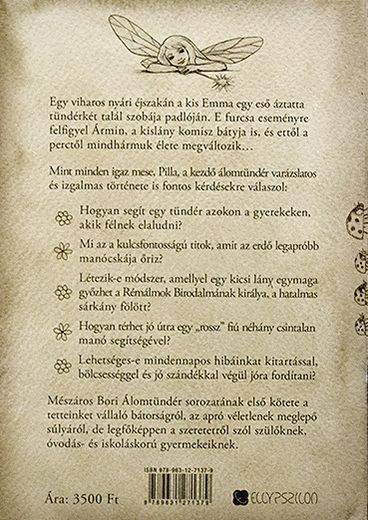 Egy viharos nyári éjszakán a kis Emma egy eső áztatta
tündérkét talál szobája padlóján. E furcsa eseményre
felfigyel Ármin, a kislány komisz bátyja is, és ettől a
perctől mindhármuk élete megváltozik…
Mint minden igaz mese, Pilla, a kezdő álomtündér varázslatos
és izgalmas története is fontos kérdésekre válaszol:
Hogyan segít egy tündér azokon a gyerekeken,
akik félnek elaludni?
Mi az a kulcsfontosságú titok, amit az erdő legapróbb
manócskája őriz?
Létezik-e módszer, amellyel egy kicsi lány egymaga
győzhet a Rémálmok Birodalmának királya, a hatalmas
sárkány fölött?
Hogyan térhet jó útra egy „rossz” fiú néhány csintalan
manó segítségével?
Lehetséges-e mindennapos hibáinkat kitartással,
bölcsességgel és jó szándékkal végül jóra fordítani?
Mészáros Bori Álomtündér sorozatának első kötete a
tetteinket vállaló bátorságról, az apró véletlenek meglepő
súlyáról, de legfőképpen a szeretetről szól szülőknek,
óvodás- és iskoláskorú gyermekeiknek.
ISBN 978-963-12-7137-9
9 789631 271379
Ára: 3500 Ft
ELLYPSZILON